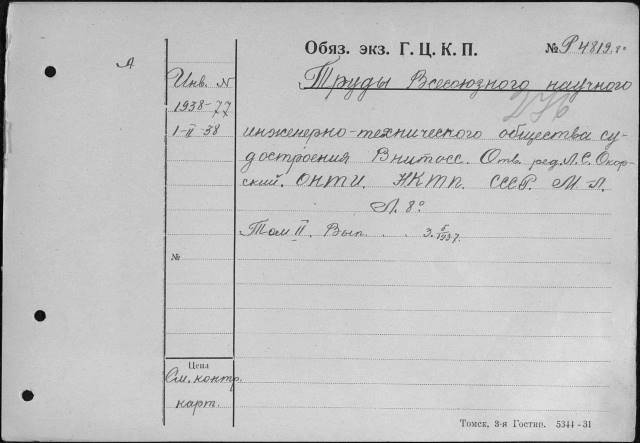 Обяз. экз. Г. Ц. К. П.
№ Р4819
А
Инв. N
1938-77
1-II-38
Труды Всесоюзного научного
инженерно-технического общества су-
достроения Внитосс. Отв. ред. Л.С. Окор-
ский. ОНТИ. НКТП. СССР. М-Л.
Л. 8°
Том II. Вып. . . 3. 5/1937.
№
Цена
См. контр.
карт.
Томск, 3-я Гостип. 5344-31